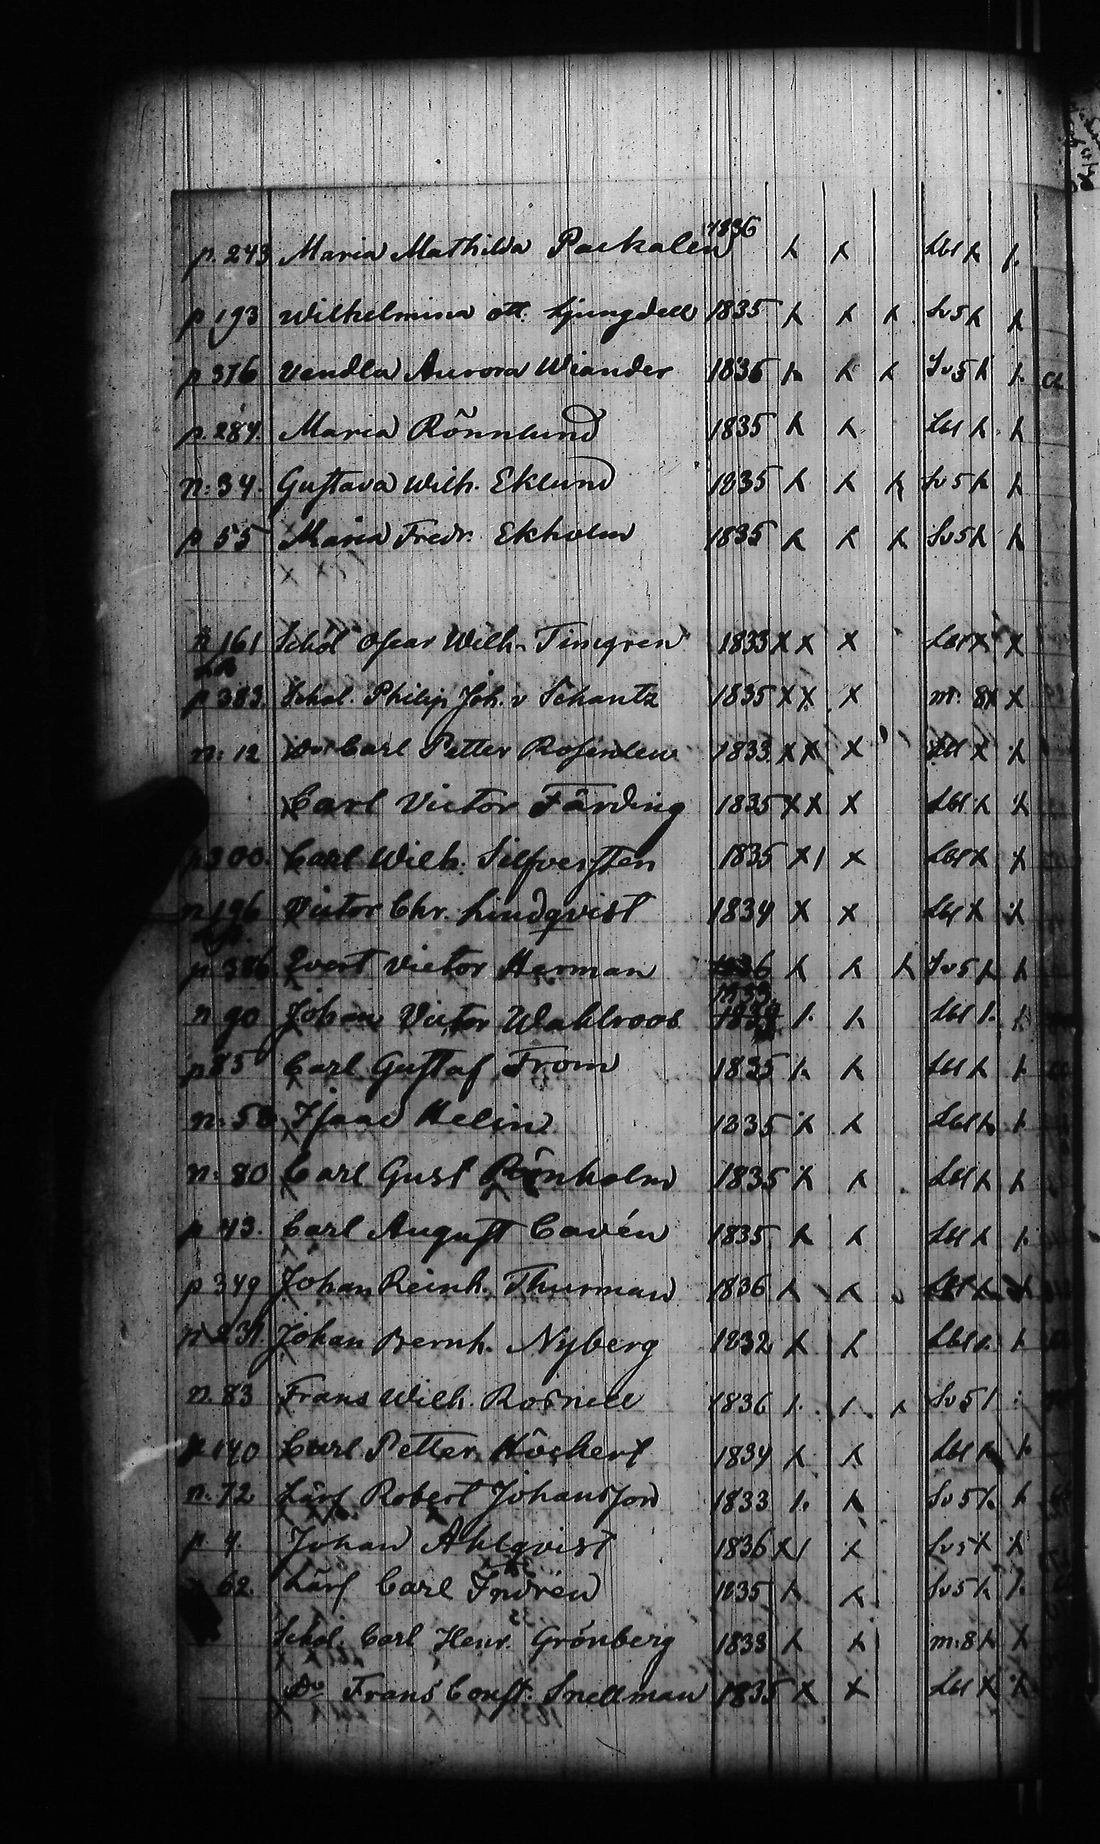 p. 243 Maria Mathilda Packalen 1836 x x Lbl x x
p 193 Wilhelmina ott. Ljungdell 1835 x x x Sv5 x x
p 376 Vendla Aurora Wiander 1836 x x x Sv5 x x
p. 284. Maria Rönnlund 1835 x x Lbl x x
n: 34. Gustava Wilh. Eklund 1835 x x x Sv5 x x
p 55 Maria Fredr. Ekholm 1835 x x x Sv5 x x
n 161 Schol Oscar Wilh. Timgren 1833 x x x Lbl x x
p 383. Schol. Philip Joh. v Schantz 1835 x x x m. 8 x x
n: 12 Do Carl Petter Rosenlew 1833 x x x Lbl x x
Carl Victor Färding 1835 x x x Lbl x x
p 300. Carl Wilh. Silfversten 1835 x / x Lbl x x
n 196 Victor Chr. Lindqvist 1834 x x Lbl x x
p. 386 Evert Victor Herman 1836 x x x Sv5 x x
n 90 Johan Victor Wahlroos 1833 x x Lbl x x
p 85 Carl Gustaf From 1835 x x Lbl x x
n: 58 Isaac Helin 1835 x x Lbl x x
n: 80 Carl Gust Rönholm 1835 x x Lbl x x
p 43. Carl August Cavén 1835 x x Lbl x x
p 349 Johan Reinh. Thurman 1836 x x Lbl x x
n 231. Johan Bernh. Nyberg 1832 x x Lbl x x
n. 83 Frans Wilh. Rosnell 1836 x x x Sv5 x
p 140 Carl Petter Höckert 1834 x x Lbl x x
n. 72 Lärl Robert Johansson 1833 x x Sv5 x x
p 4. Johan Ahlqvist 1836 x / x Sv5 x x
n 62. Lärl Carl Indrén 1835 x x Sv5 x x
Schol. Carl Henr. Grönberg 1833 x x m: 8 x x
Do Frans Const. Snellman 1835 x x Lbl x x